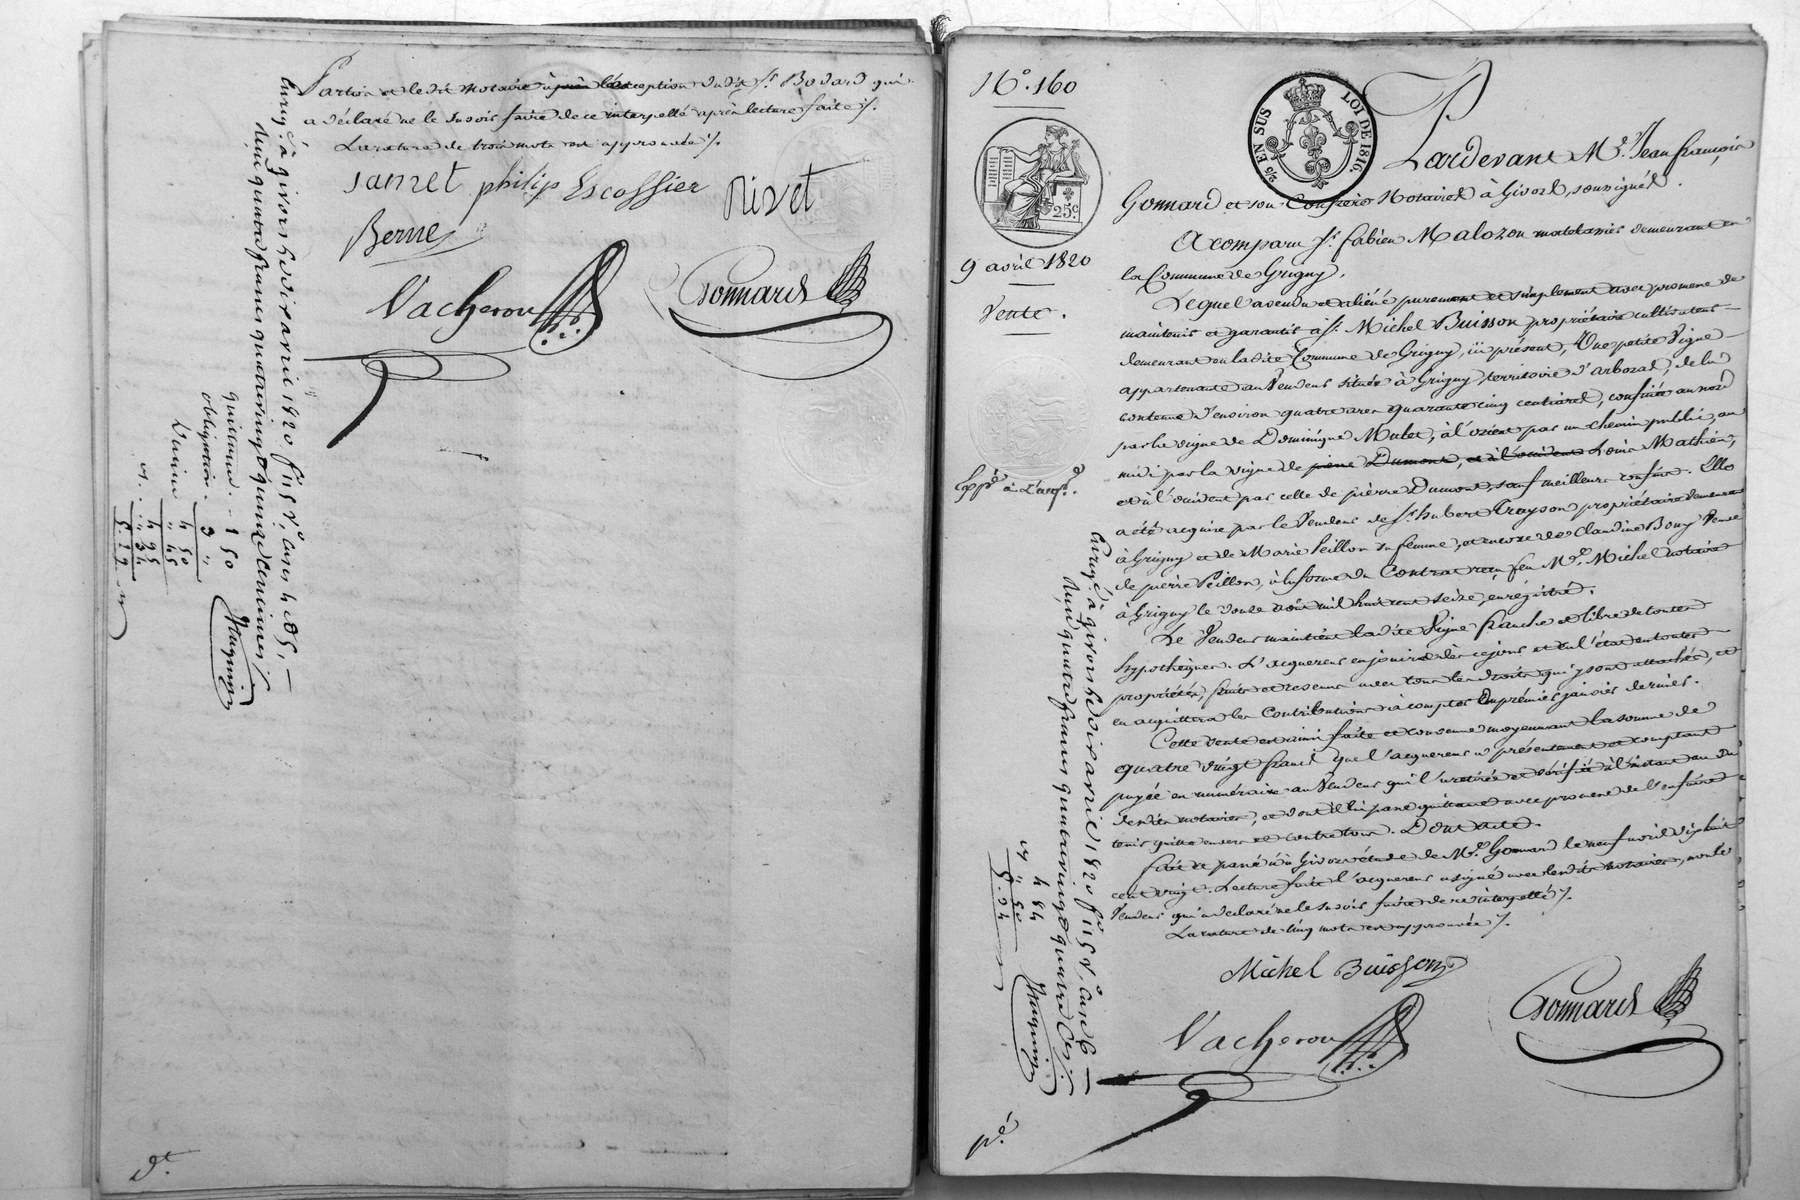 Parties et le dit notaire à l'exception dudit Sr. Bodard qui
a déclaré ne le savoir faire de ce interpellé après lecture faite ./.
La rature de trois mots est approuvée ./.
Jamet philip Escoffier Rivet
Berne
Vacheron Gonnard
Enregé. à givors le dix avril 1820 fo. 115 vo. cases 4 et 5,
quittance .. 1 50
obligation . 3 "
4 50
" 45
4 95
dt.
No. 160
25c
2/5 EN SUS
LOI DE 1816.
9 avril 1820
Vente.
Expé. à L'acqr.
Pardevant Me. Jean françois
Gonnard et son Confrère Notaires à Givors, soussignés.
A comparu Sr. fabien Malozon matelassier demeurant en
la Commune de Grigny.
Lequel a vendu et aliéné purement et simplement avec promesse de
maintenir et garantir à Sr. Michel Buisson propriétaire cultivateur
demeurant en la dite Commune de Grigny, ici présent, Une petite Vigne
appartenante au Vendeur située à Grigny, territoire d'arboras, de la
contenue d'environ quatre ares quarante cinq centiares, confinée au nord
par la vigne de Dominique Mulet, à l'orient par un chemin public, au
midi par la vigne de pierre Dumont, et à l'occident Louis Mathieu,
et à l'occident par celle de pierre Dumont, sauf meilleurs confins. Elle
a été acquise par le Vendeur de Sr. hubert Crayson propriétaire demeurant
à Grigny et de Marie Peillon sa femme, et encore de Claudine Bony Veuve
de pierre Peillon, à la forme du Contrat reçu feu Me. Michel notaire
à Grigny le douze août mil huit cent seize, enregistré.
Le Vendeur maintient la dite Vigne franche et libre de toutes
hypothèques. L'acquéreur en jouira dès ce jour et en l'état en toutes
propriétés, fruits et revenus avec tous les droits qui y sont attachés, et
en acquittera les Contributions à compter du premier janvier dernier.
Cette vente est ainsi faite et convenue moyennant la somme de
quatre vingt francs que l'acquéreur a présentement et comptant
payée en numéraire au Vendeur qui l'a retirée et vérifiée à l'instant au vu
desdits notaires, et dont il lui passe quittance avec promesse de l'en faire
tenir quitte envers et contre tous. Dont acte.
fait et passé à Givors étude de Me. Gonnard le neuf avril dix huit
cent vingt. Lecture faite l'acquéreur a signé avec lesdits notaires, non le
Vendeur qui a déclaré ne le savoir faire de ce interpellé ./.
La rature de cinq mots est approuvée ./.
Michel Buisson
Vacheron Gonnard
Enregé. à givors le dix avril 1820 fo. 115 vo. case 6
4 84
" 50